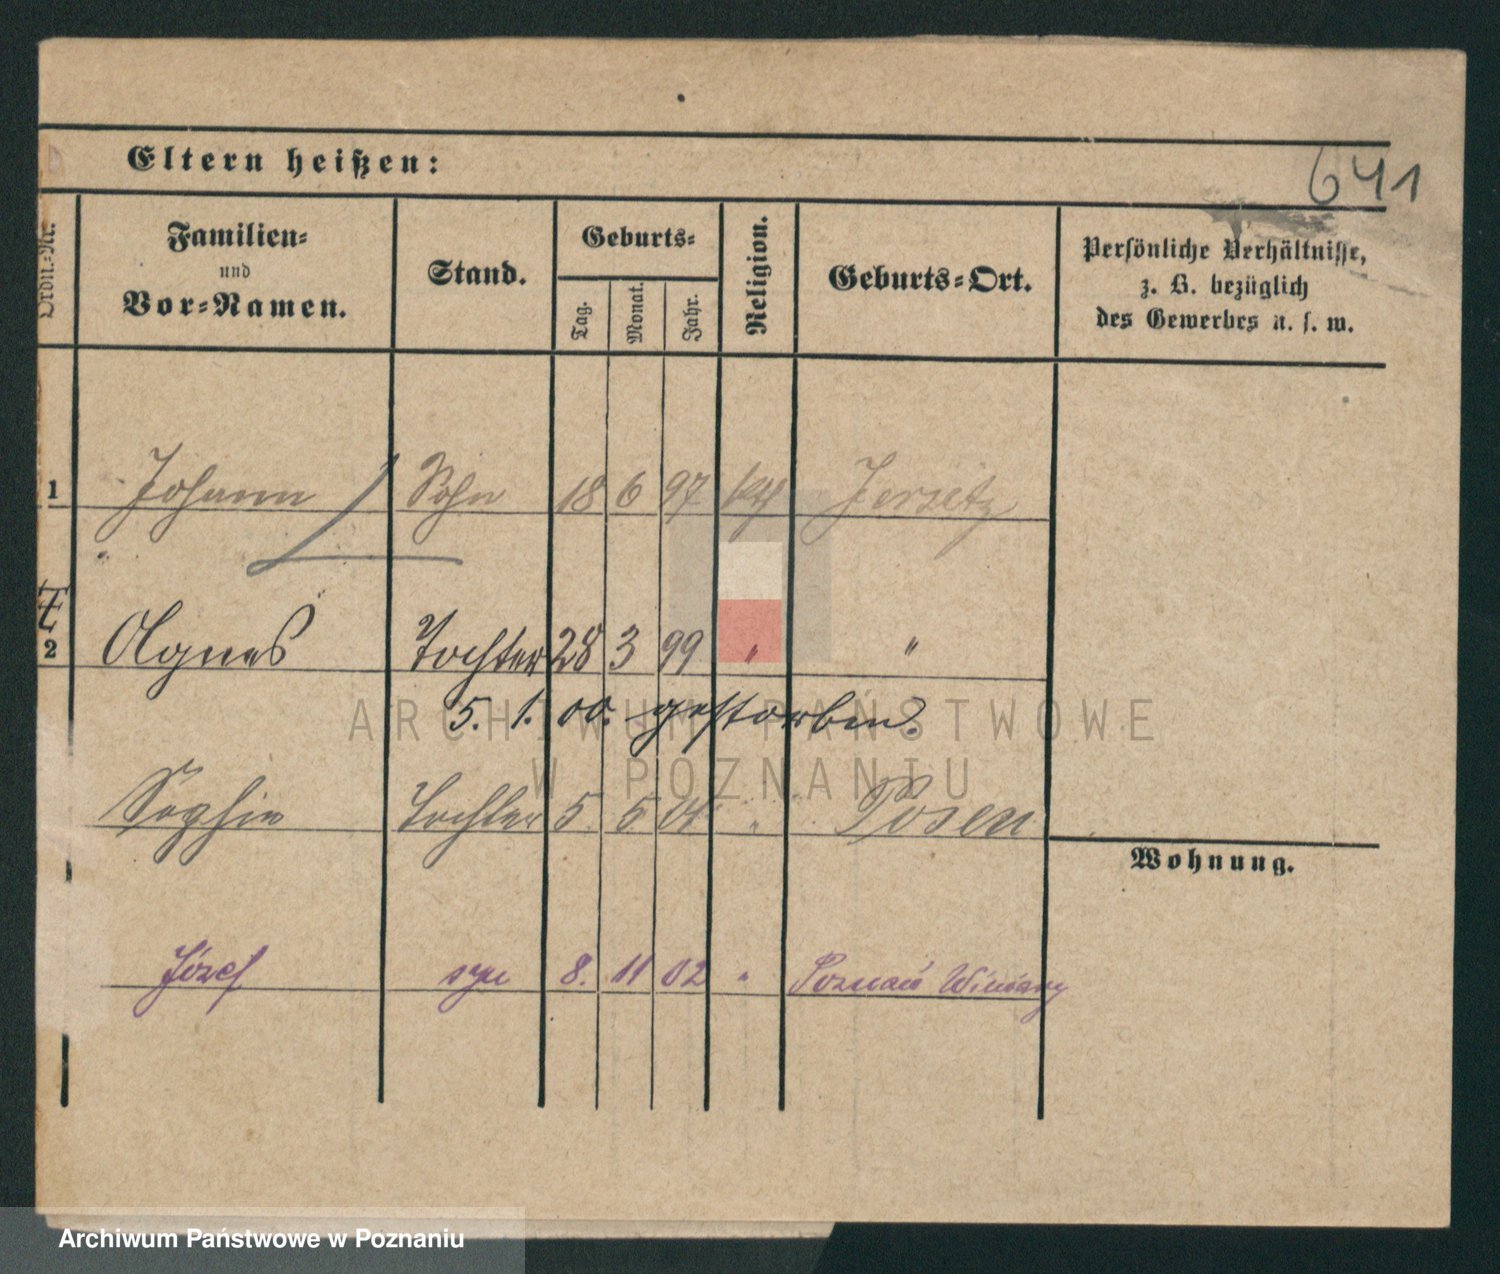 Eltern heißen:
641
Ordn.-Nr.
Familien-
und
Vor-Namen.
Stand.
Geburts-
Tag.
Monat.
Jahr.
Religion.
Geburts-Ort.
Persönliche Verhältnisse,
z. B. bezüglich
des Gewerbes u. s. w.
1 Johann Sohn 18 6 97 kth Jersitz
2 Agnes Tochter 28 3 99 " "
5. 1. 00. gestorben.
Sophie Tochter 5. 5. 01 " Posen
Wohnung.
Józef syn 8. 11 02 " Poznań Winiary
ARCHIWUM PAŃSTWOWE
W POZNANIU
Archiwum Państwowe w Poznaniu